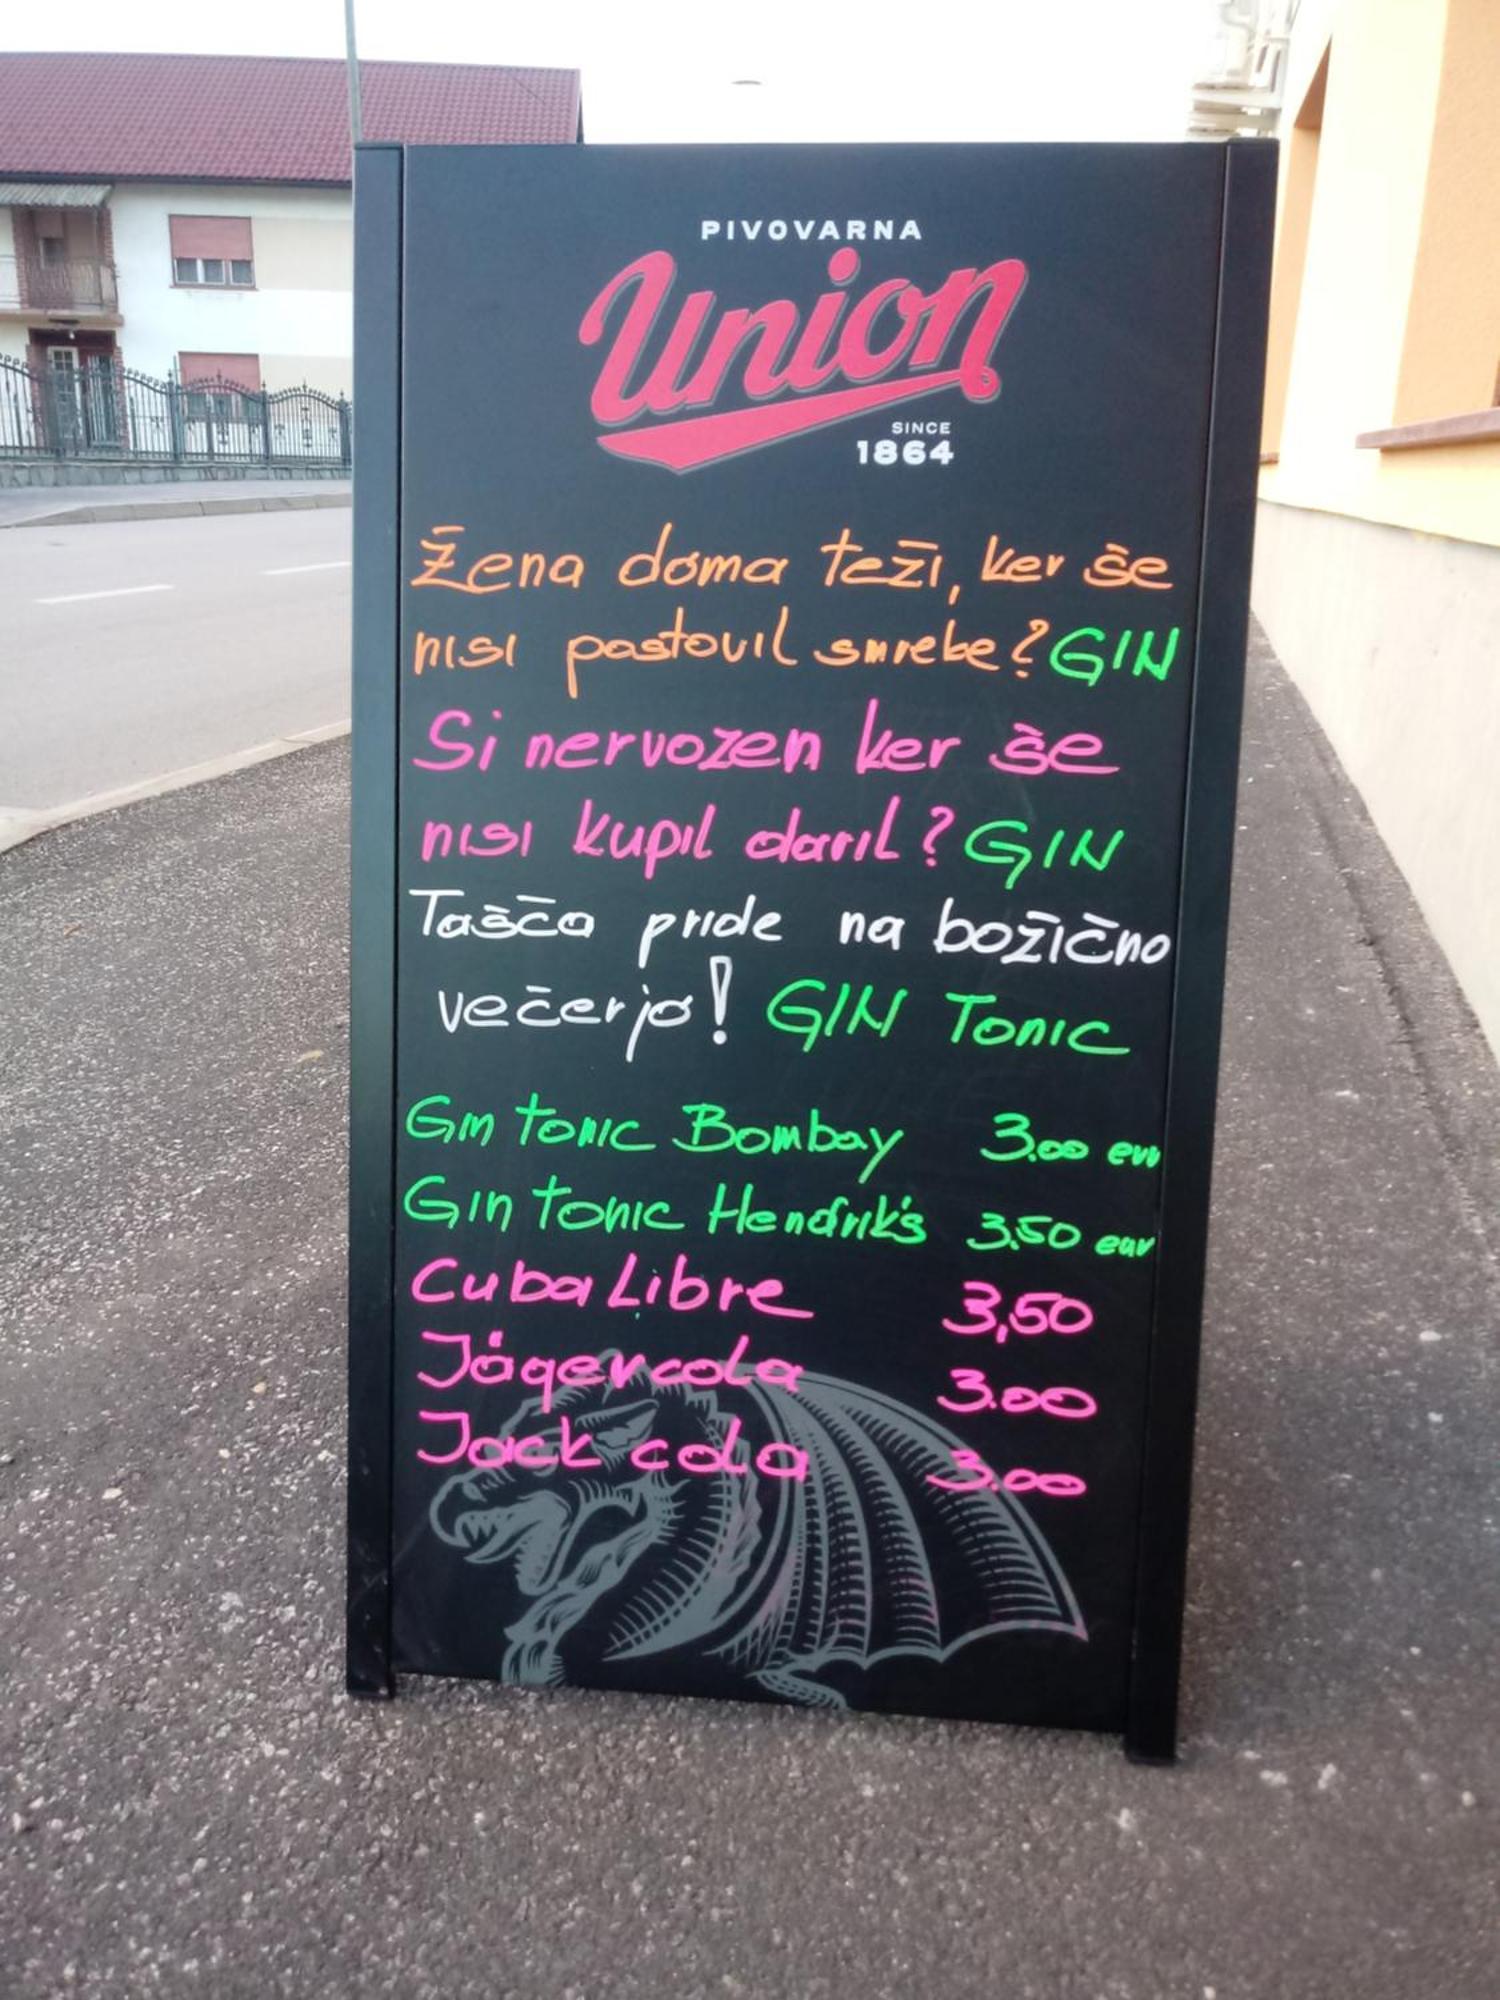 PIVOVARNA
Union
SINCE
1864
Žena doma teži, ker še
nisi postovil smreke? GIN
Si nervozen ker še
nisi kupil daril? GIN
Tašča pride na božično
večerjo! GIN TONIC
Gin tonic Bombay 3.00 eur
Gin tonic Hendrik's 3.50 eur
Cuba Libre 3,50
Jäger cola 3.00
Jack cola 3.00